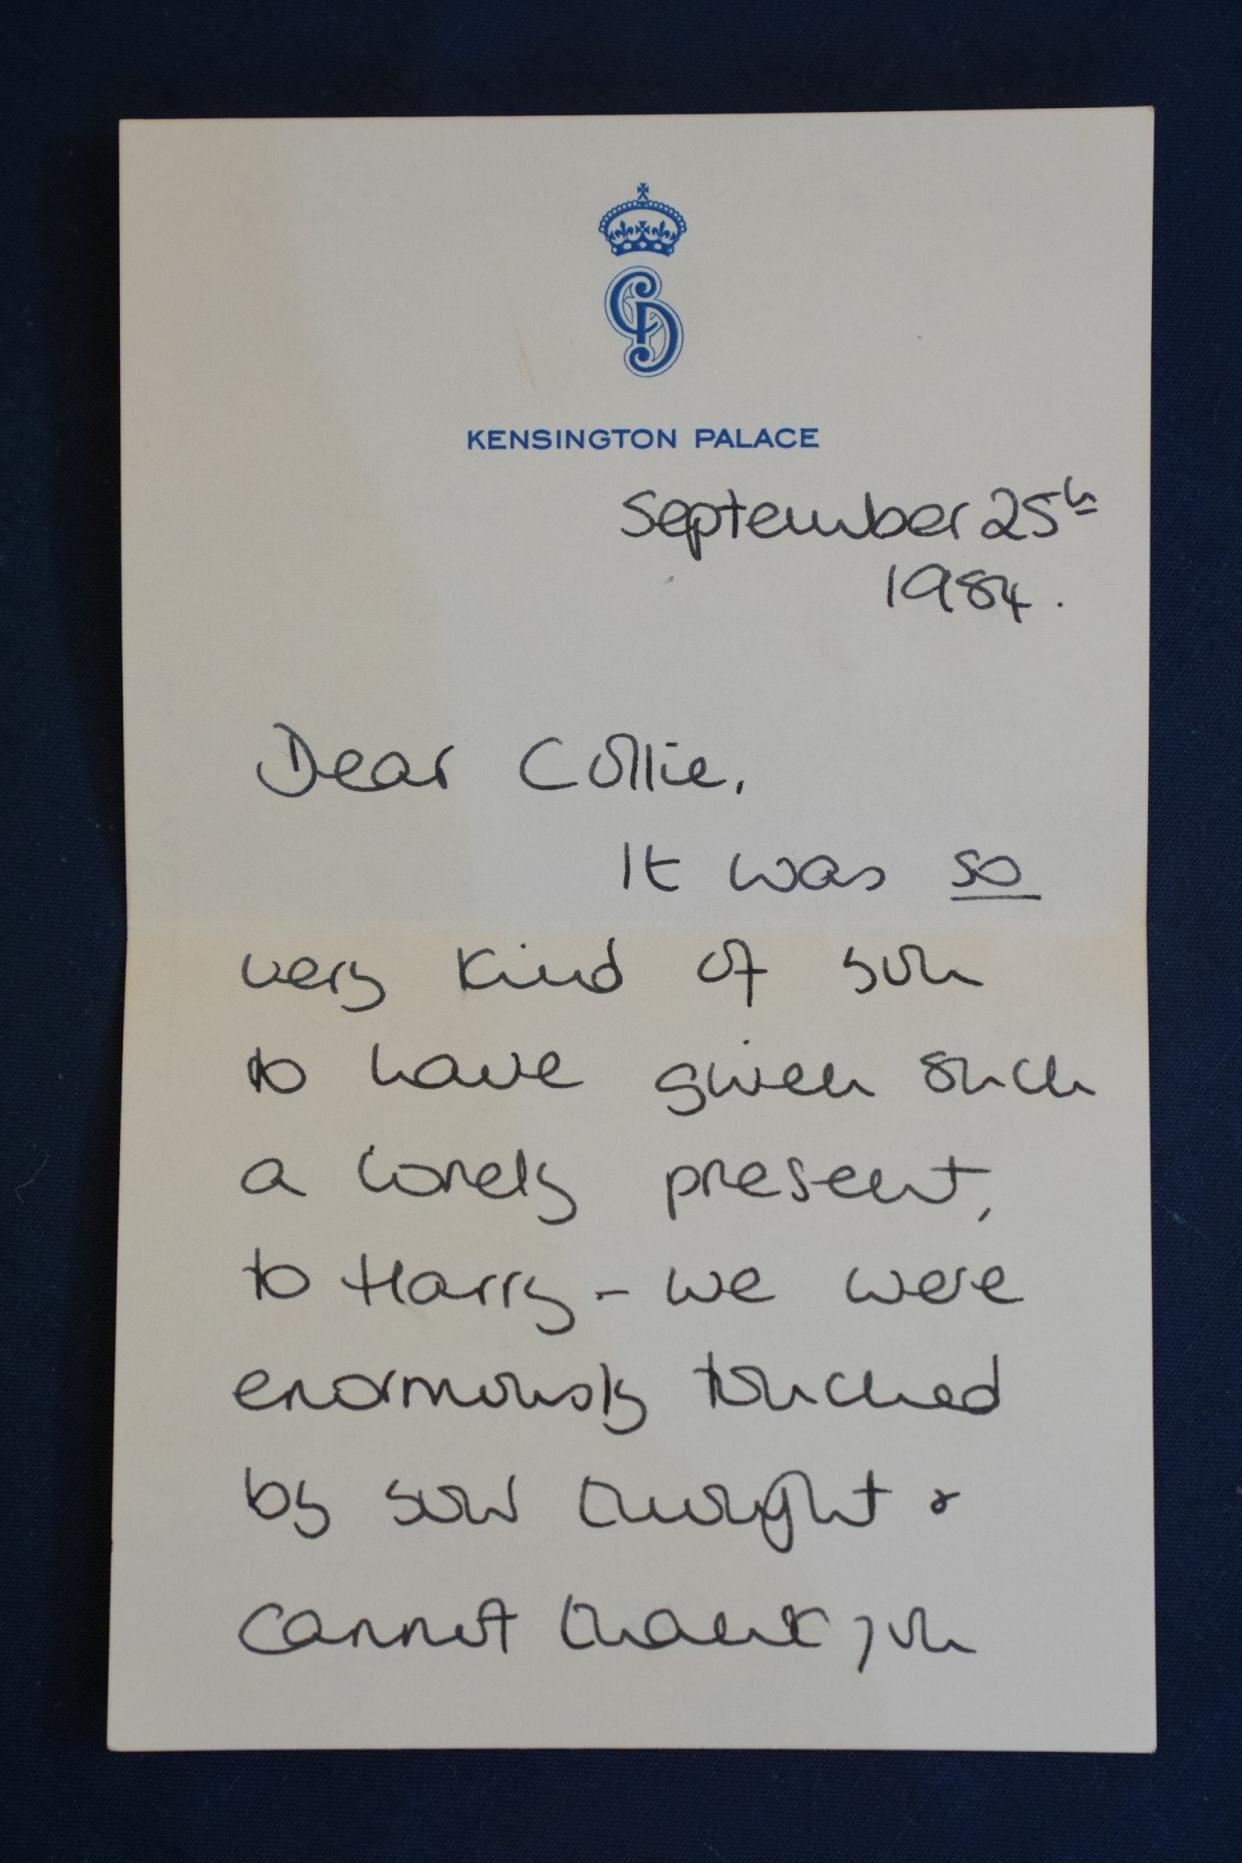 CD
KENSINGTON PALACE
September 25th
1984.
Dear Collie,
It was so
very kind of you
to have given such
a lovely present,
to Harry - we were
enormously touched
by your thought &
cannot thank you